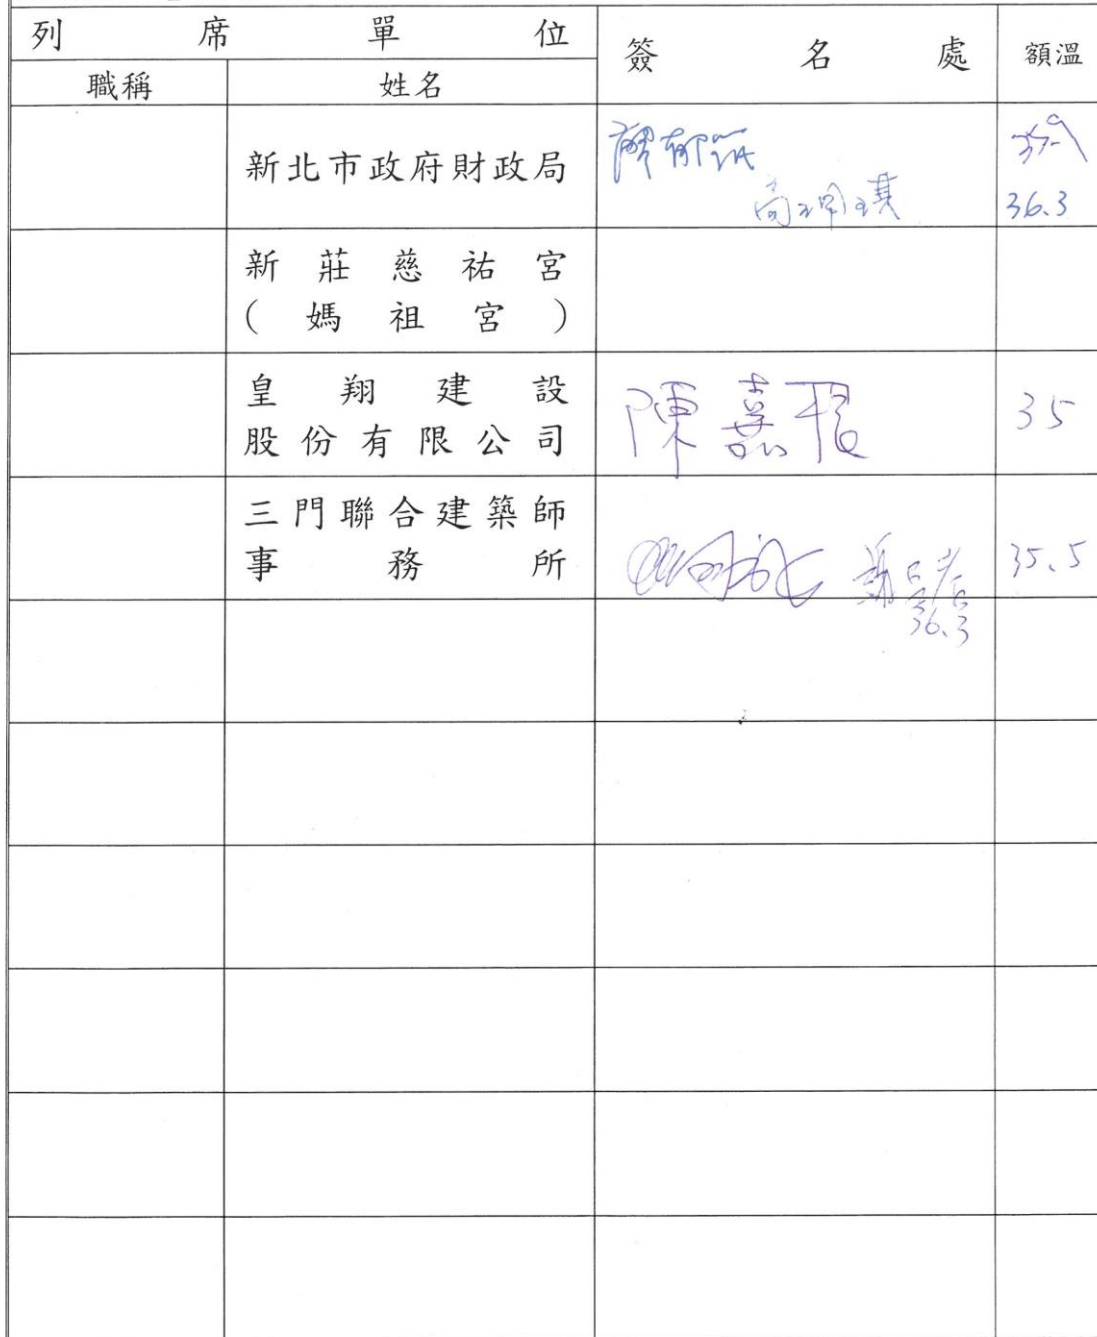 列席單位
簽名處
額溫
職稱
姓名
新北市政府財政局
36.3
新莊慈祐宮
(媽祖宮)
皇翔建設
股份有限公司
陳嘉
35
三門聯合建築師
事務所
35.5
36.3